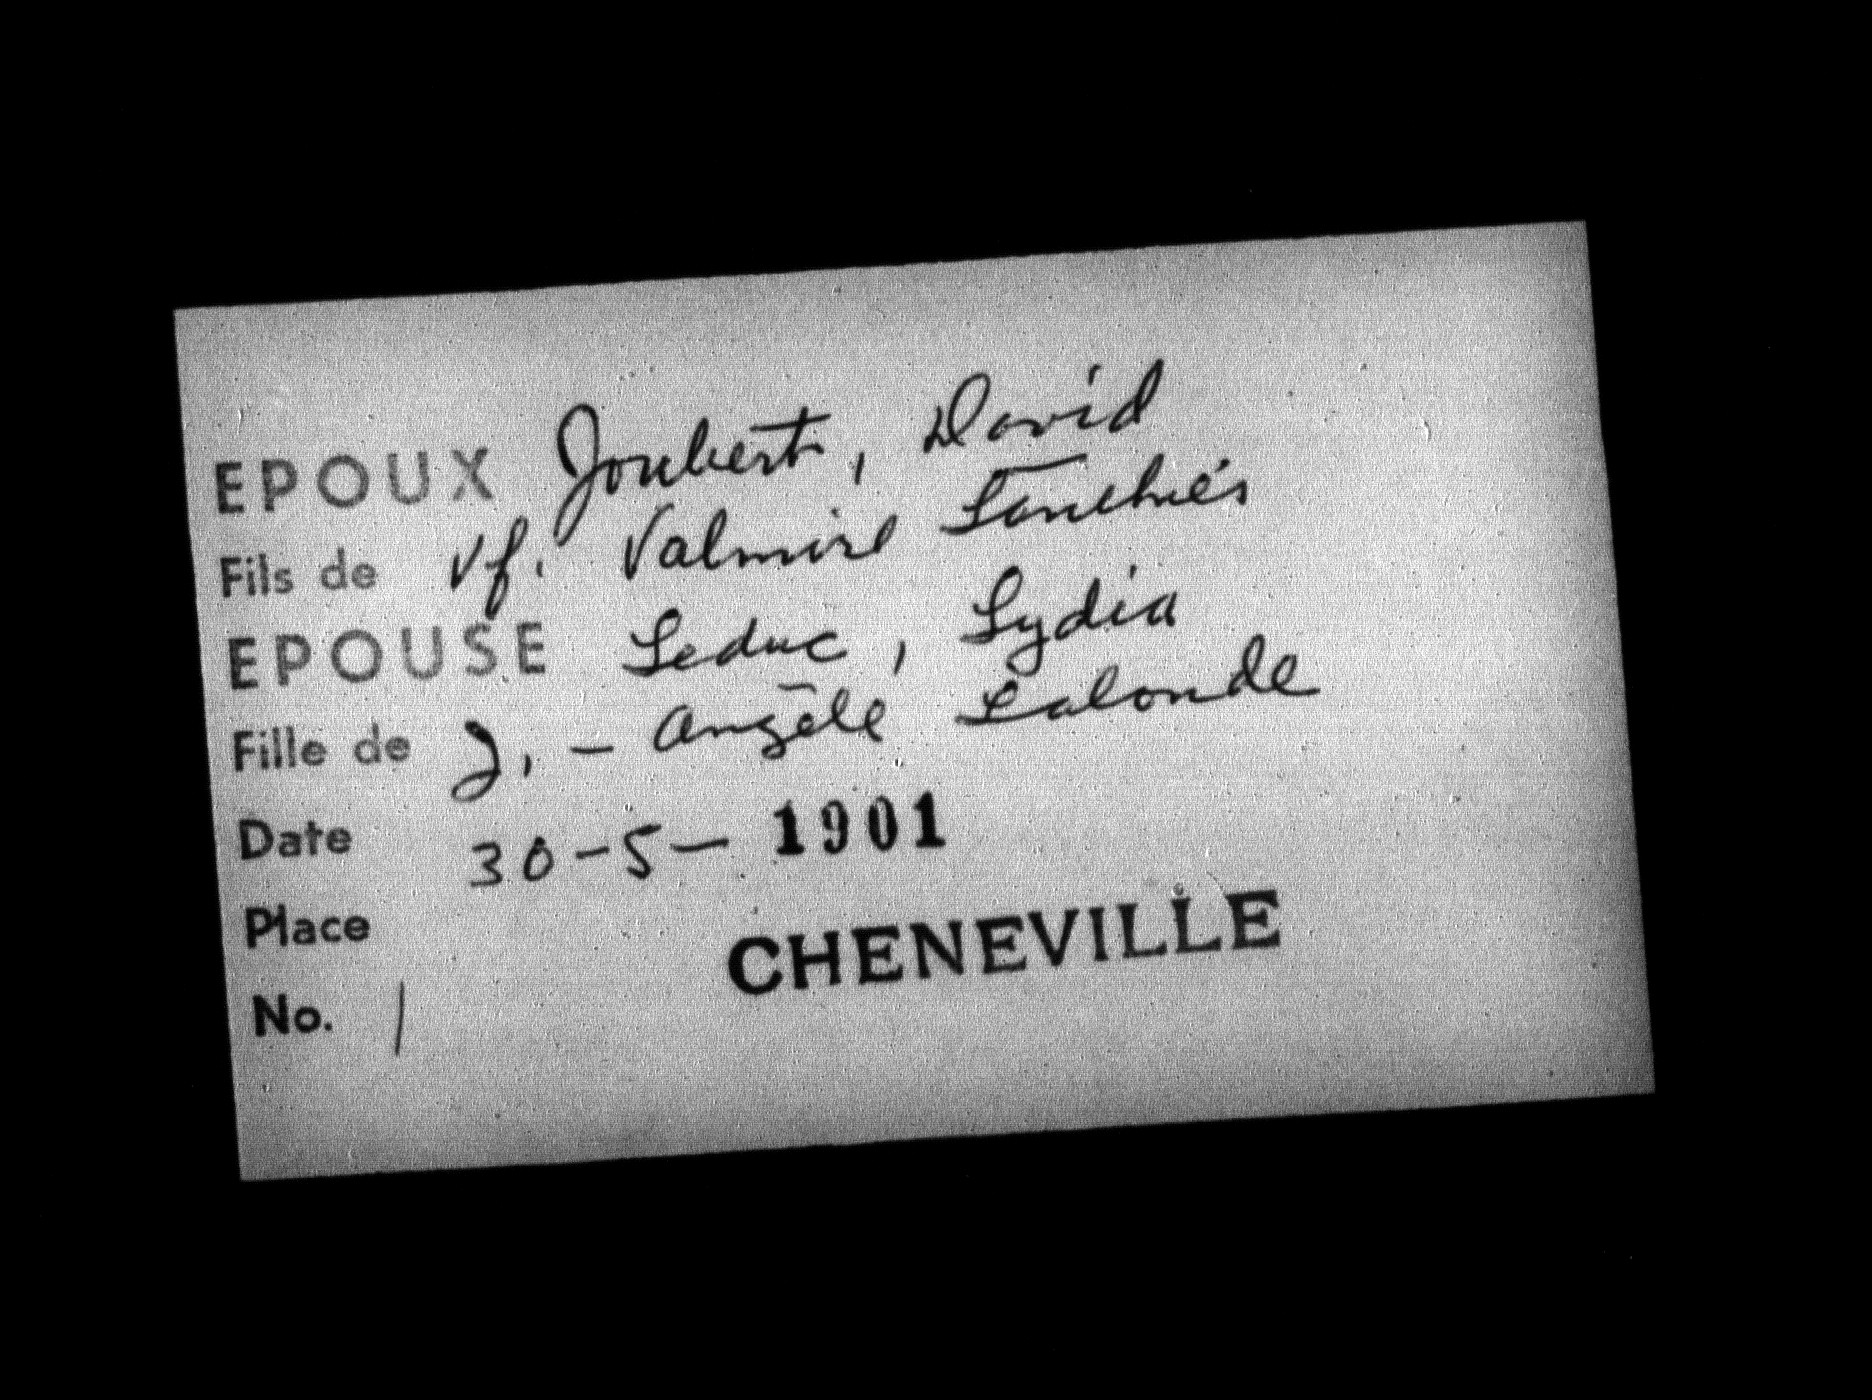 EPOUX Joubert, David
Fils de Vf. Valmire
EPOUSE Leduc, Lydia
Fille de J. - Angèle Lalonde
Date 30-5-1901
Place CHENEVILLE
No. 1